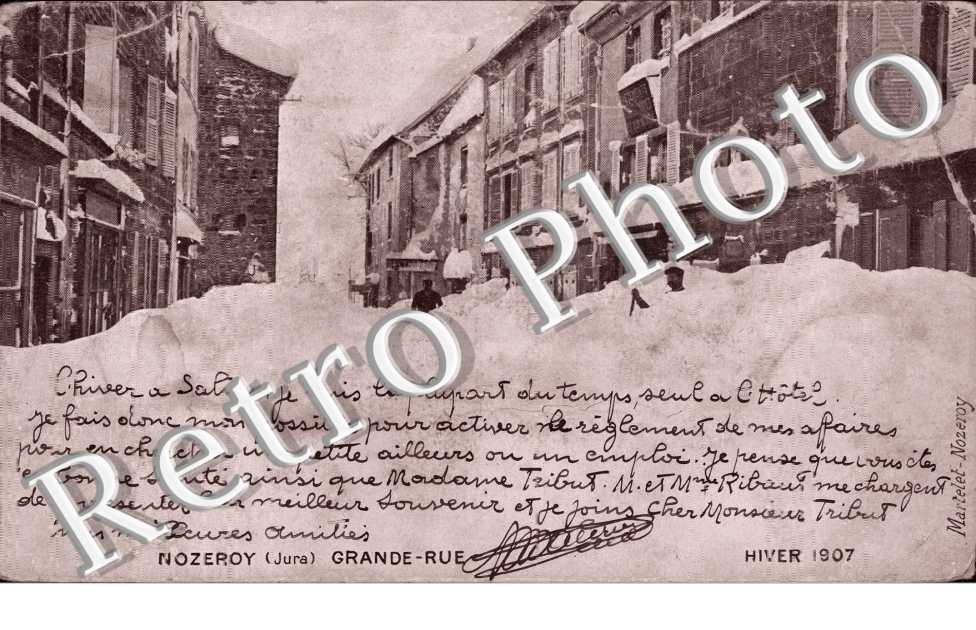 L'hiver a je suis la plupart du temps, seul a l'Hôtel.
Je fais donc mon possible pour activer le règlement de mes affaires
pour en chercher une petite ailleurs ou un emploi. Je pense que vous êtes
en bonne santé ainsi que Madame Tribut. M. et Mme Ribaut me chargent
de présenter leur meilleur souvenir et je joins Cher Monsieur Tribut
mes meilleures amitiés
NOZEROY (Jura) GRANDE-RUE
HIVER 1907
Martelet-Nozeroy
Retro Photo